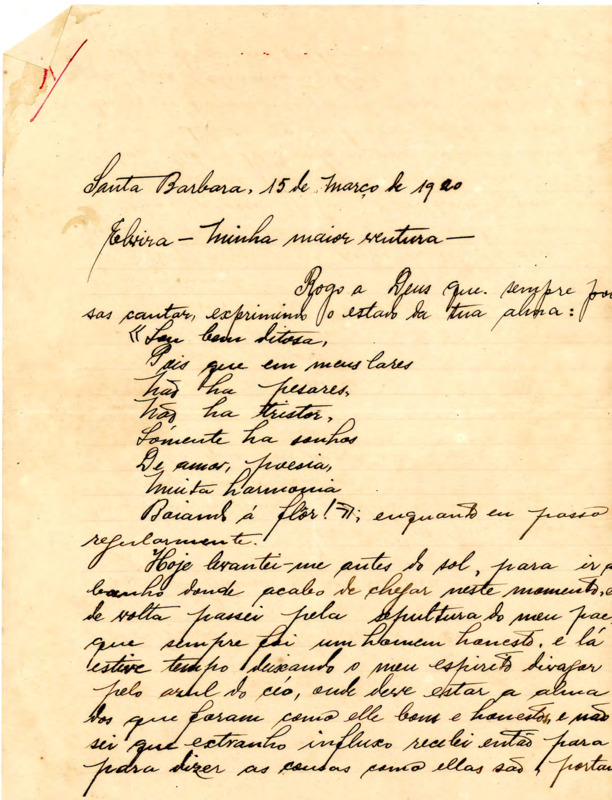 Santa Barbara, 15 de Março de 1920
Elvira — Minha maior ventura —
Rogo a Deus que sempre pos
sas cantar, exprimindo o estado da tua alma:
«Sou bem ditosa,
Pois que em meus lares
Não ha pesares,
Não ha tristor,
Sómente ha sonhos
De amor, poesia,
Muita harmonia
Boiando á flôr!»; enquanto eu passo
regularmente.
Hoje levantei-me antes do sol, para ir a
banho donde acabo de chegar neste momento, e
de volta passei pela sepultura do meu pae,
que sempre foi um homem honesto, e lá
estive tempo deixando o meu espirito divagar
pelo azul do céo, onde deve estar a alma
dos que foram como elle bom e honestos, e não
sei que extranho influxo recebi então para
para dizer as cousas como ellas são, portan